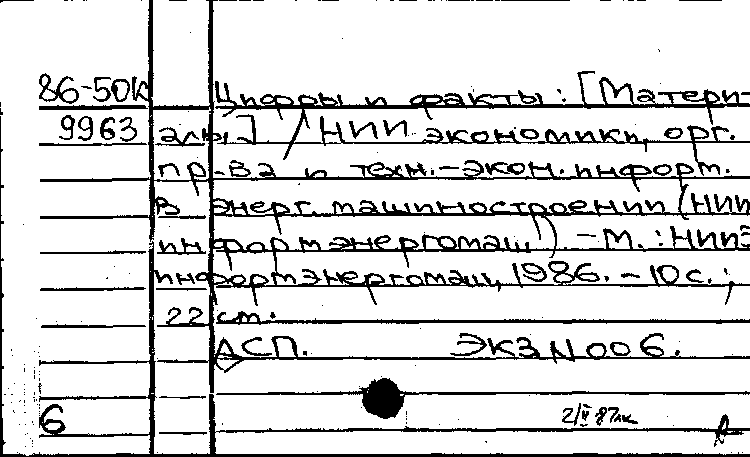 86-50К Цифры и факты: [Матери-
9963 алы] / НИИ экономики, орг.
пр-ва и техн.-экон. информ.
в энерг. машиностроении (НИИ
информэнергомаш). - М.: НИИЭ
информэнергомаш, 1986. - 10 с.;
22 см.
ДСП. ЭКЗ N 006.
6 2/IV 87